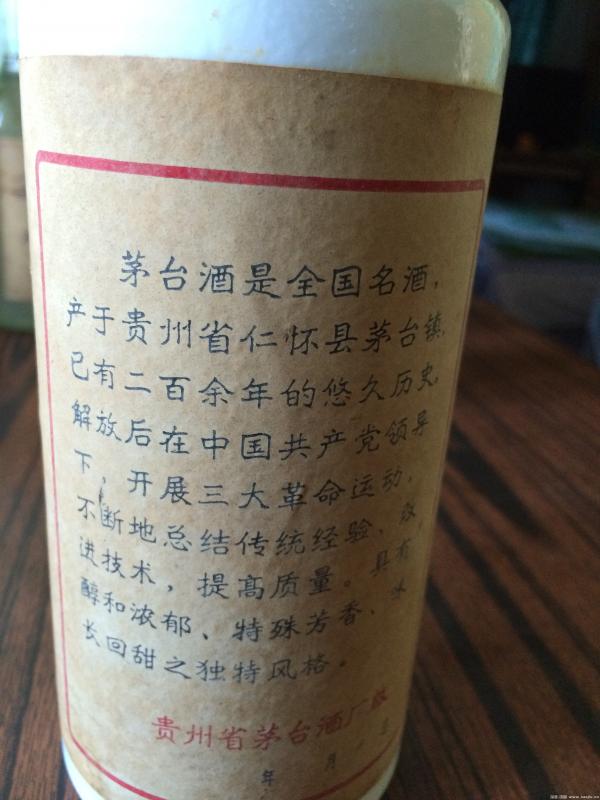 茅台酒是全国名酒,
产于贵州省仁怀县茅台镇,
已有二百余年的悠久历史,
解放后在中国共产党领导
下,开展三大革命运动,
不断地总结传统经验、改
进技术,提高质量。具有
醇和浓郁、特殊芳香、味
长回甜之独特风格。
贵州省茅台酒厂
年 月